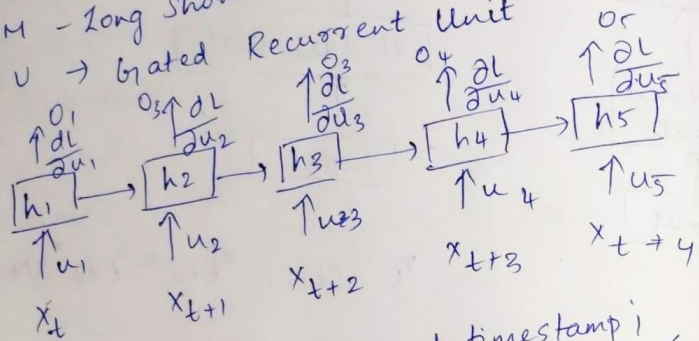 M - Long Sho
U → Gated Recurrent Unit
O1 O3 O3 O4 O5
∂L/∂u1 ∂L/∂u2 ∂L/∂u3 ∂L/∂u4 ∂L/∂u5
h1 → h2 → h3 → h4 → h5
u1 u2 u3 u4 u5
Xt Xt+1 Xt+2 Xt+3 Xt+4
timestamp i